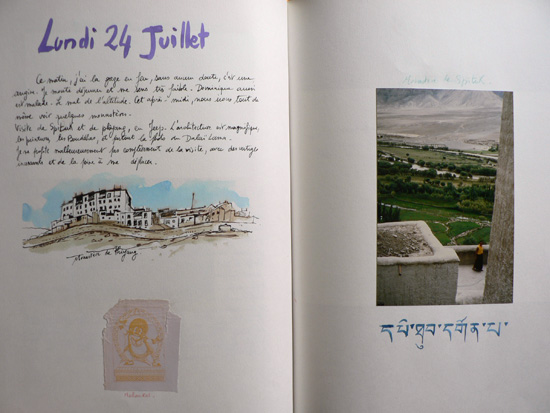 Lundi 24 Juillet
Ce matin, j'ai la gorge en feu, sans aucun doute, c'est une
angine. Je monte déjeuner et me sens très faible. Dominique aussi
est malade. Le mal de l'altitude. Cet après-midi, nous irons tout de
même voir quelques monastères.
Visite de Spituk et de phyang, en Jeep. L'architecture est magnifique,
les peintures, les Bouddhas, et partout la photo du Dalaï Lama.
Je ne profite malheureusement pas complètement de la visite, avec des vertiges
et de la peine à me déplacer.
Monastère de Phyang
Monastère de Spituk